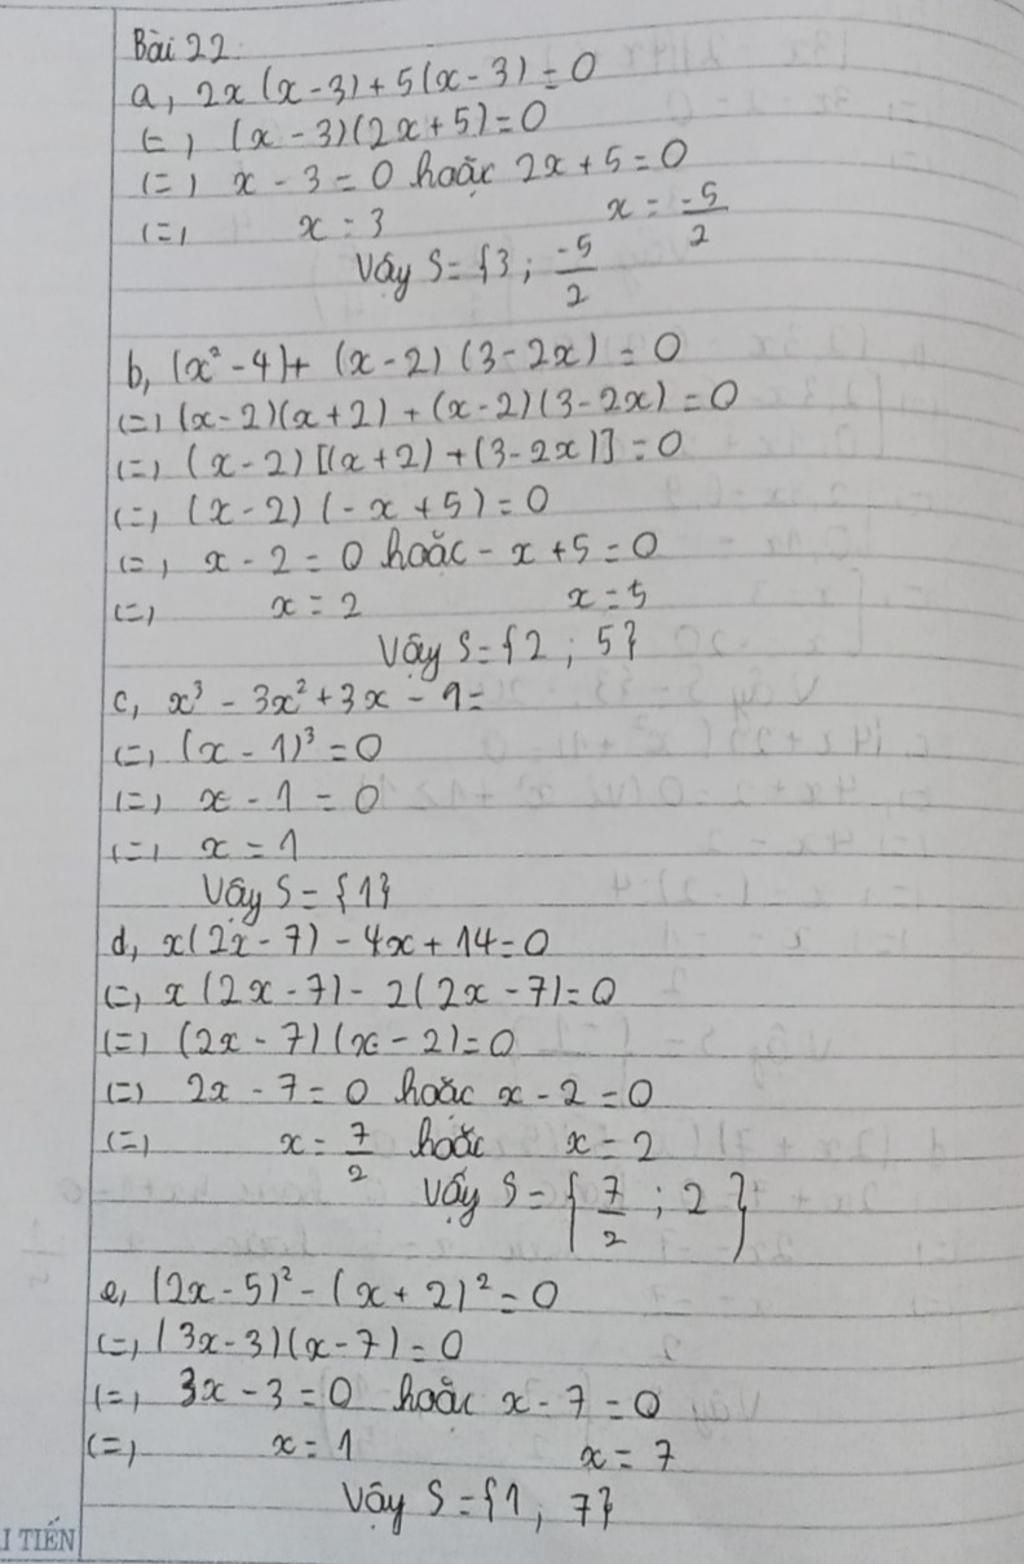 Bài 22:
a, 2x(x-3)+5(x-3)=0
(=) (x-3)(2x+5)=0
(=) x-3=0 hoặc 2x+5=0
(=) x=3 x=-5/2
Vậy S={3; -5/2
b, (x²-4)+(x-2)(3-2x)=0
(=) (x-2)(x+2)+(x-2)(3-2x)=0
(=) (x-2)[(x+2)+(3-2x)]=0
(=) (x-2)(-x+5)=0
(=) x-2=0 hoặc -x+5=0
(=) x=2 x=5
Vậy S={2; 5}
c, x³-3x²+3x-1=
(=) (x-1)³=0
(=) x-1=0
(=) x=1
Vậy S={1}
d, x(2x-7)-4x+14=0
(=) x(2x-7)-2(2x-7)=0
(=) (2x-7)(x-2)=0
(=) 2x-7=0 hoặc x-2=0
(=) x=7/2 hoặc x=2
Vậy S={7/2; 2}
e, (2x-5)²-(x+2)²=0
(=) (3x-3)(x-7)=0
(=) 3x-3=0 hoặc x-7=0
(=) x=1 x=7
Vậy S={1, 7}
I TIẾN